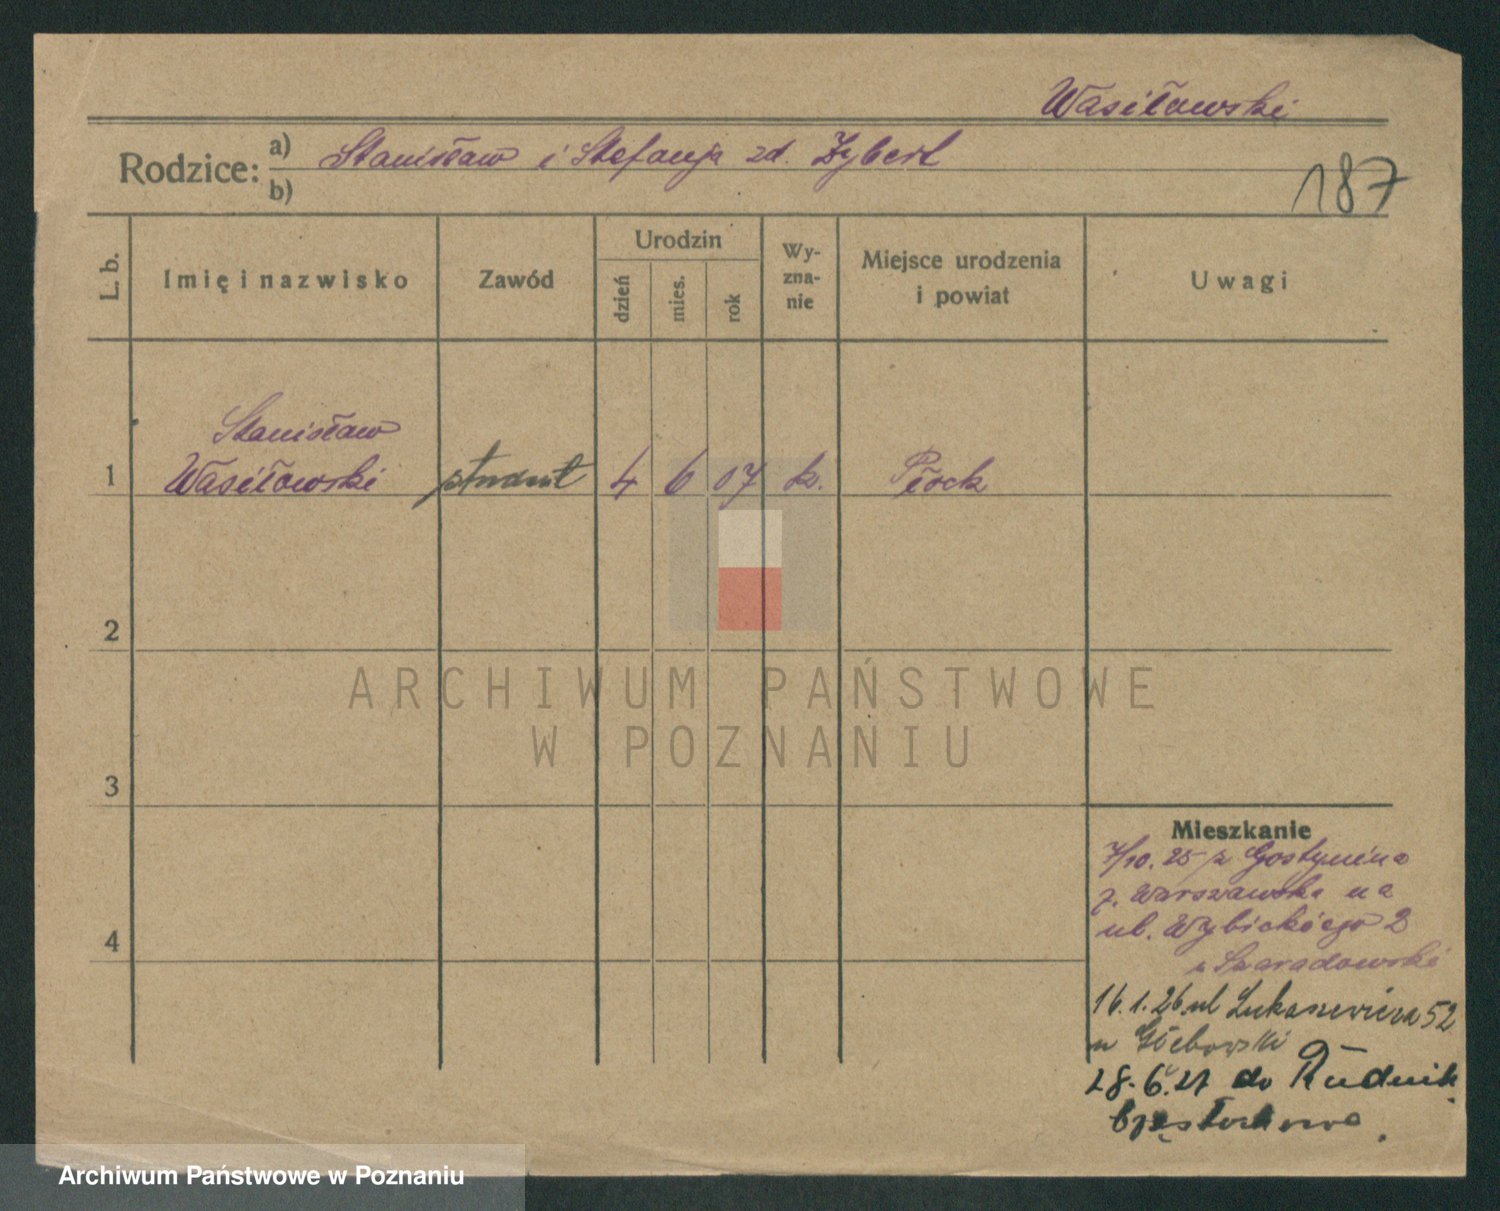 Wasiłowski
Rodzice: a) Stanisław i Stefanja zd. Zybert
b)
187
L. b.
Imię i nazwisko
Zawód
Urodzin
dzień
mies.
rok
Wy-
zna-
nie
Miejsce urodzenia
i powiat
Uwagi
Stanisław
1 Wasiłowski student 4 6 07 k. Płock
2
3
4
Mieszkanie
7/10. 25 z Gostynina
z. Warszawska na
ul. Wybickiego 2
u Szaradowski
16. 1. 26 ul Łukaszewicza 52
u Głebowski
28. 6. 27 do Rudnik
Częstochowa.
ARCHIWUM PAŃSTWOWE
W POZNANIU
Archiwum Państwowe w Poznaniu